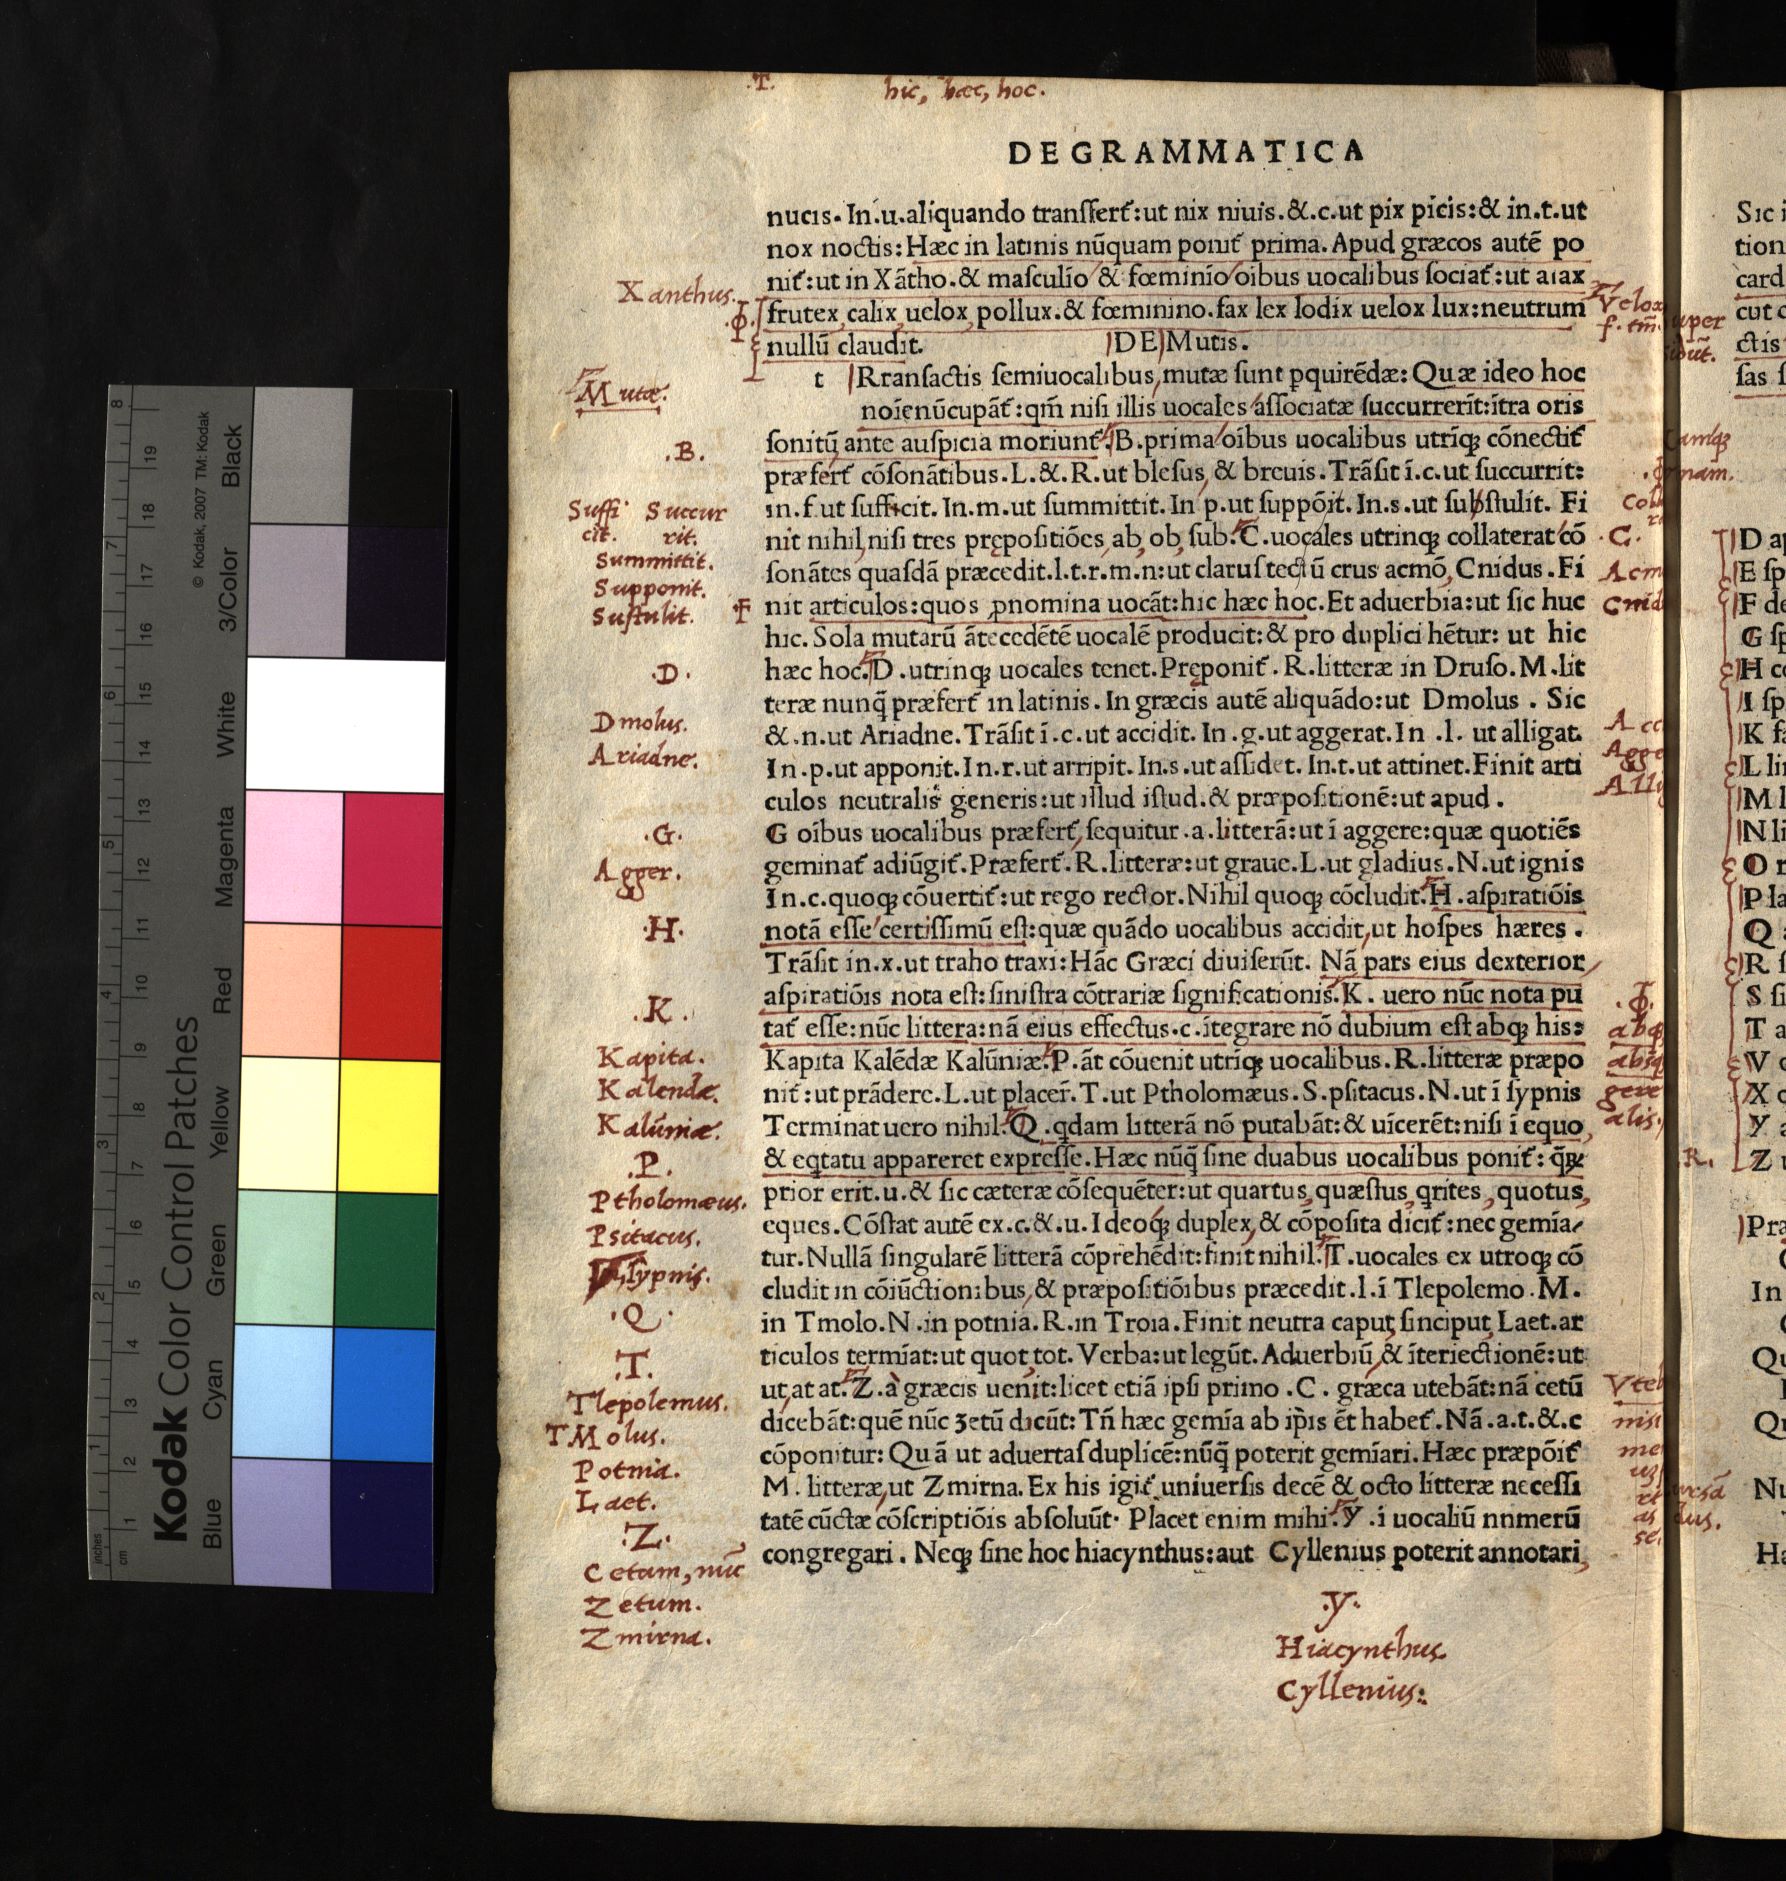 .T. hic, hæc, hoc.
DE GRAMMATICA
nucis. In.u.aliquando transfert᷑:ut nix niuis.&.c.ut pix picis:& in.t.ut
nox noctis:Hæc in latinis nũquam ponit᷑ prima.Apud græcos autẽ po
nit᷑:ut in Xãtho.& masculío & fœminío oibus uocalibus sociat᷑:ut aiax
frutex calix uelox pollux.& fœminino.fax lex lodix uelox lux:neutrum
nullũ claudit. DE Mutis.
t Rransactis semiuocalibus,mutæ sunt ꝑquirẽdæ:Quæ ideo hoc
noíenũcupãt᷑:qm̃ nisi illis uocales associatæ succurrerĩt:ĩtra oris
sonitũ ante auspicia moriunt᷑.B.prima oĩbus uocalibus utrĩqꝫ cõnectit᷑
præfert᷑ cõsonãtibus.L.&.R.ut blesus, & breuis.Trãsit ĩ.c.ut succurrit:
in.f.ut sufficit. In.m.ut summittit. In p.ut suppõit. In.s.ut subſtulit. Fi
nit nihil,nisi tres prępositiões,ab,ob,sub.C.uocales utrinqꝫ collaterat cõ
sonãtes quasdã præcedit.l.t.r.m.n:ut clarus tectũ crus acmõ,Cnidus.Fi
nit articulos:quos ꝓnomina uocãt:hic hæc hoc.Et aduerbia:ut sic huc
hic. Sola mutarũ ãtecedẽtẽ uocalẽ producit:& pro duplici hẽtur: ut hic
hæc hoc.D.utrinqꝫ uocales tenet.Pręponit᷑. R.litteræ in Druso.M.lit
teræ nunq̃ præfert᷑ in latinis. In græcis autẽ aliquãdo:ut Dmolus . Sic
&.n.ut Ariadne.Trãsit ĩ.c.ut accidit. In .g.ut aggerat.In .l. ut alligat.
In.p.ut apponit.In.r.ut arripit. In.s.ut assidet. In.t.ut attinet.Finit arti
culos neutralis generis:ut illud istud.& præpositionẽ:ut apud.
G oĩbus uocalibus præfert᷑,sequitur.a.litterã:ut ĩ aggere:quæ quotiẽs
geminat᷑ adiũgit᷑.Præfert᷑.R.litteræ:ut graue.L.ut gladius.N.ut ignis
In.c.quoqꝫ cõuertit᷑:ut rego rector.Nihil quoqꝫ cõcludit.H.aspiratiõis
notã esse certissimũ est:quæ quãdo uocalibus accidit,ut hospes hæres .
Trãsit in.x.ut traho traxi:Hãc Græci diuiserũt. Nã pars eius dexterior
aspiratiõis nota est:sinistra cõtrariæ significationis.K. uero nũc nota pu
tat᷑ esse:nũc littera:nã eius effectus.c.ĩtegrare nõ dubium est abqꝫ his:
Kapita Kalẽdæ Kalũniæ.P.ãt cõuenit utrĩqꝫ uocalibus.R.litteræ præpo
nit᷑:ut prãdere.L.ut placer̃.T.ut Ptholomæus.S.psitacus.N.ut ĩ sypnis
Terminat uero nihil.Q.qdam litterã nõ putabãt:& uícerẽt:nisi ĩ equo,
& eqtatu appareret expresse.Hæc nũq̃ sine duabus uocalibus ponit᷑:q̃ꝝ
prior erit.u.& sic cæteræ cõsequẽter:ut quartus,quæstus,qrites,quotus,
eques.Cõstat autẽ ex.c.&.u.Ideoqꝫ duplex,& cõposita dicit᷑:nec gemía-
tur.Nullã singularẽ litterã cõprehẽdit:finit nihil.T.uocales ex utroqꝫ cõ
cludit in cõiũctionibus,& præpositiõibus præcedit.l.ĩ Tlepolemo.M.
in Tmolo.N.in potnia.R.in Troia.Finit neutra caput,sinciput,Laet.ar
ticulos termĩat:ut quot,tot. Verba:ut legũt. Aduerbiũ,& ĩteriectionẽ:ut
ut,at at.Z.à græcis uenit:licet etiã ipsi primo.C. græca utebãt:nã cetũ
dicebãt:quẽ nũc ʒetũ dicũt:Tñ hæc gemĩa ab ip̃is ẽt habet᷑.Nã.a.t.&.c
cõponitur:Quã ut aduertas duplicẽ:nũq̃ poterit gemĩari.Hæc præpõit᷑
M.litteræ,ut Zmirna.Ex his igit᷑ uniuersis decẽ & octo litteræ necessi
tatẽ cũctæ cõscriptiõis absoluũt. Placet enim mihi.Y.i uocaliũ nnmerũ
congregari. Neqꝫ sine hoc hiacynthus:aut Cyllenius poterit annotari,
Xanthus.
Mutæ.
.B.
Suffi Succur
cit. rit.
Summittit.
Supponit.
Sustulit.
.D.
Dmolus.
Ariadne.
.G.
Agger.
.H.
.K.
Kapita.
Kalendæ.
Kalũniæ.
.P.
Ptholomæus.
Psitacus.
Sypnis.
.Q.
.T.
Tlepolemus.
TMolus.
Potnia.
Laet.
.Z.
Cetum, nũc
Zetum.
Zmirna.
Velox
.C.
Acm
Cnid
Acc
Agge
Alli
abqꝫ
absqꝫ
gere
alis.
.R.
.Y.
Hiacynthus.
Cyllenius.
Sic i
tion
card
cut c
ctis
sas s
D ap
E sp
F de
G sp
H co
I sp
K fa
L lin
M l
N li
O r
P la
Q
R s
S si
T a
V c
X c
Y a
Z u
Pra
In
Qu
Qu
Nu
Ha
Kodak Color Control Patches
© Kodak, 2007 TM: Kodak
Blue Cyan Green Yellow Red Magenta White 3/Color Black
inches 1 2 3 4 5 6 7 8
cm 1 2 3 4 5 6 7 8 9 10 11 12 13 14 15 16 17 18 19